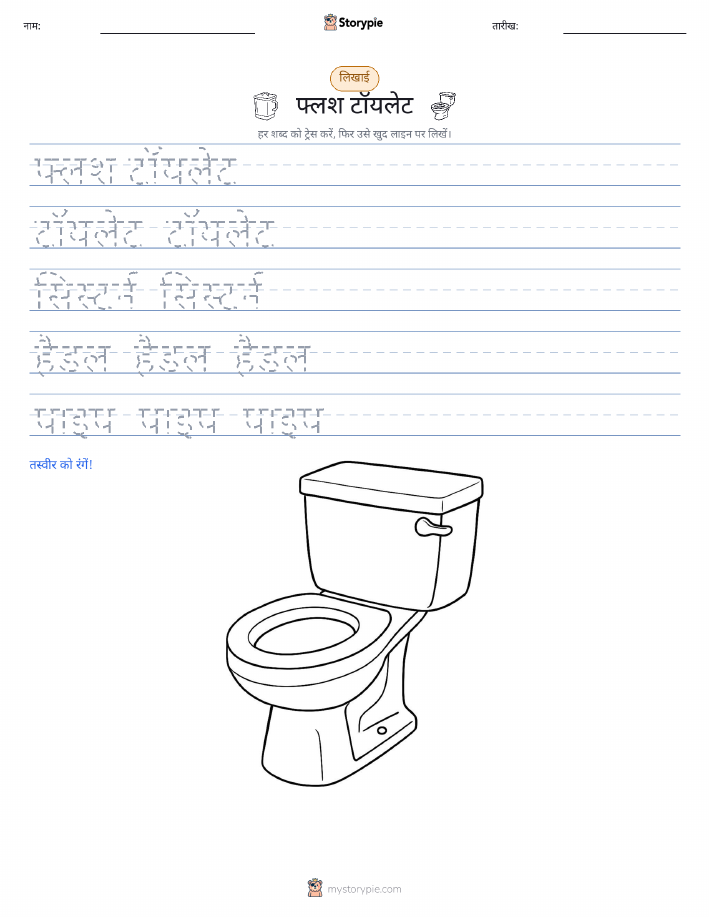 नाम:
Storypie
तारीख:
लिखाई
फ्लश टॉयलेट
हर शब्द को ट्रेस करें, फिर उसे खुद लाइन पर लिखें।
फ्लश टॉयलेट
टॉयलेट टॉयलेट
सिस्टर्न सिस्टर्न
हैंडल हैंडल हैंडल
पाइप पाइप पाइप
तस्वीर को रंगें!
mystorypie.com